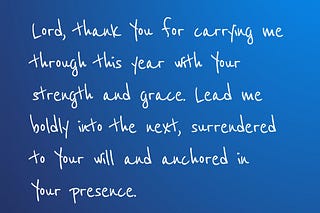 Lord, thank You for carrying me
through this year with Your
strength and grace. Lead me
boldly into the next, surrendered
to Your will and anchored in
Your presence.